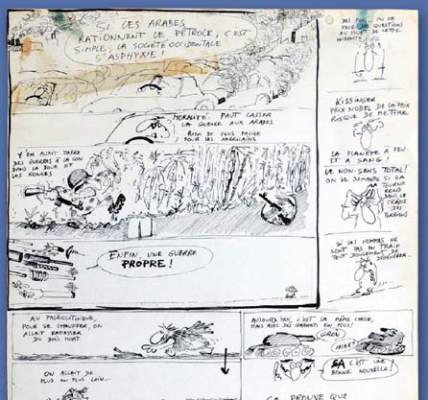 SI CES ARABES
RATIONNENT LE PÉTROLE, C'EST
SIMPLE, LA SOCIÉTÉ OCCIDENTALE
S'ASPHYXIE !
MORALITÉ: FAUT CASSER
LA GUEULE AUX ARABES
Y EN AVAIT MARRE
DES GUERRES À LA CON
DANS LA JOUR ET
LES
ENFIN, UNE GUERRE
PROPRE !
AU PALÉOLITHIQUE,
POUR SE CHAUFFER, ON
ALLAIT RAMASSER
DU BOIS MORT
ON ALLAIT DE
PLUS EN PLUS LOIN...
KISSINGER
PRIX NOBEL DE LA PAIX
RISQUE DE METTRE
LA PLANÈTE À FEU
ET À SANG !
LE NON-SENS TOTAL !
ON SE DEMANDE SI ÇA
TOURNE
ROND
DANS LE
CRÂNE
DES
SI LES HOMMES NE
SONT PAS EN TRAIN
TOUT DOUCEMENT DE
AUJOURD'HUI, C'EST LA MÊME CHOSE,
MAIS AVEC DES
ÇA C'EST UNE
BONNE NOUVELLE !
ÇA PROUVE QUE